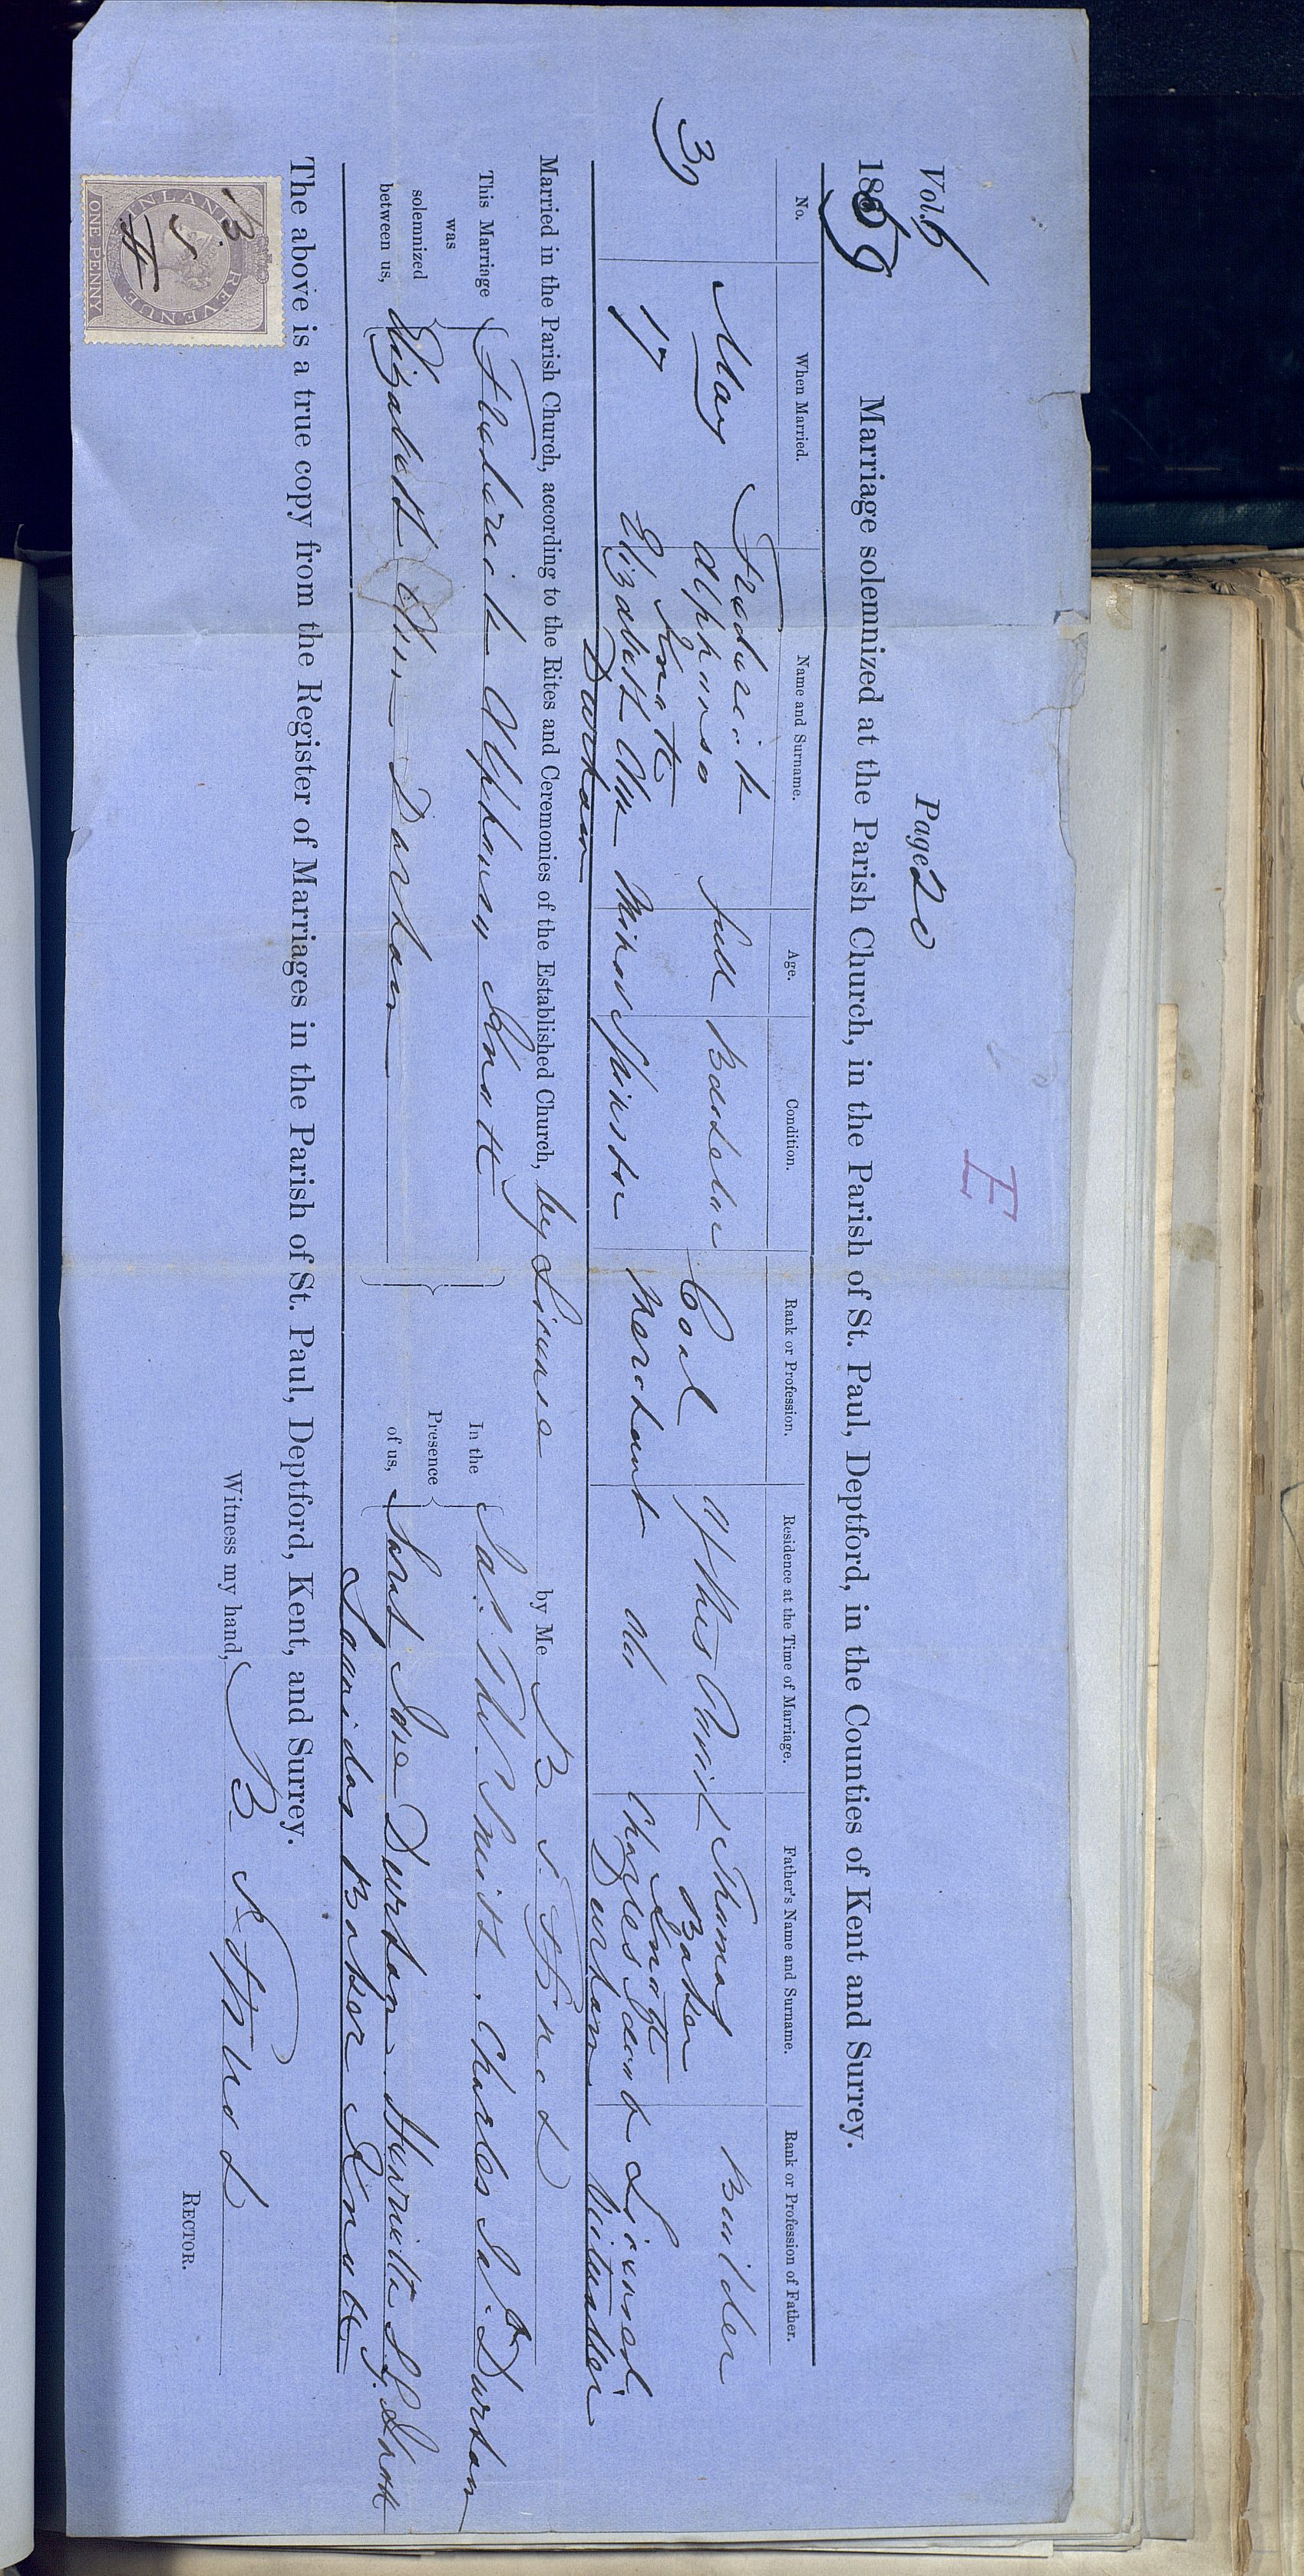 E
Vol. 6 Page 20
1869 Marriage solemnized at the Parish Church, in the Parish of St. Paul, Deptford, in the Counties of Kent and Surrey.
No. When Married. Name and Surname. Age. Condition. Rank or Profession. Residence at the Time of Marriage. Father's Name and Surname. Rank or Profession of Father.
39 May 17 Frederick Alphonso Knott full Bachelor Coal Merchant Of this Parish Thomas Baker Knott Builder
Elizabeth Ann Durham Minor Spinster do. Charles Durham Licensed Victualler
Married in the Parish Church, according to the Rites and Ceremonies of the Established Church, by License by Me B. S. Ffinch
This Marriage was solemnized between us, Frederick Alphonso Knott
Elizabeth Ann Durham
In the Presence of us, Smith, Charles Durham
Jane Durham Henrietta Knott
Baker Knott
The above is a true copy from the Register of Marriages in the Parish of St. Paul, Deptford, Kent, and Surrey.
Witness my hand, B. S. Ffinch
RECTOR.
INLAND REVENUE
ONE PENNY